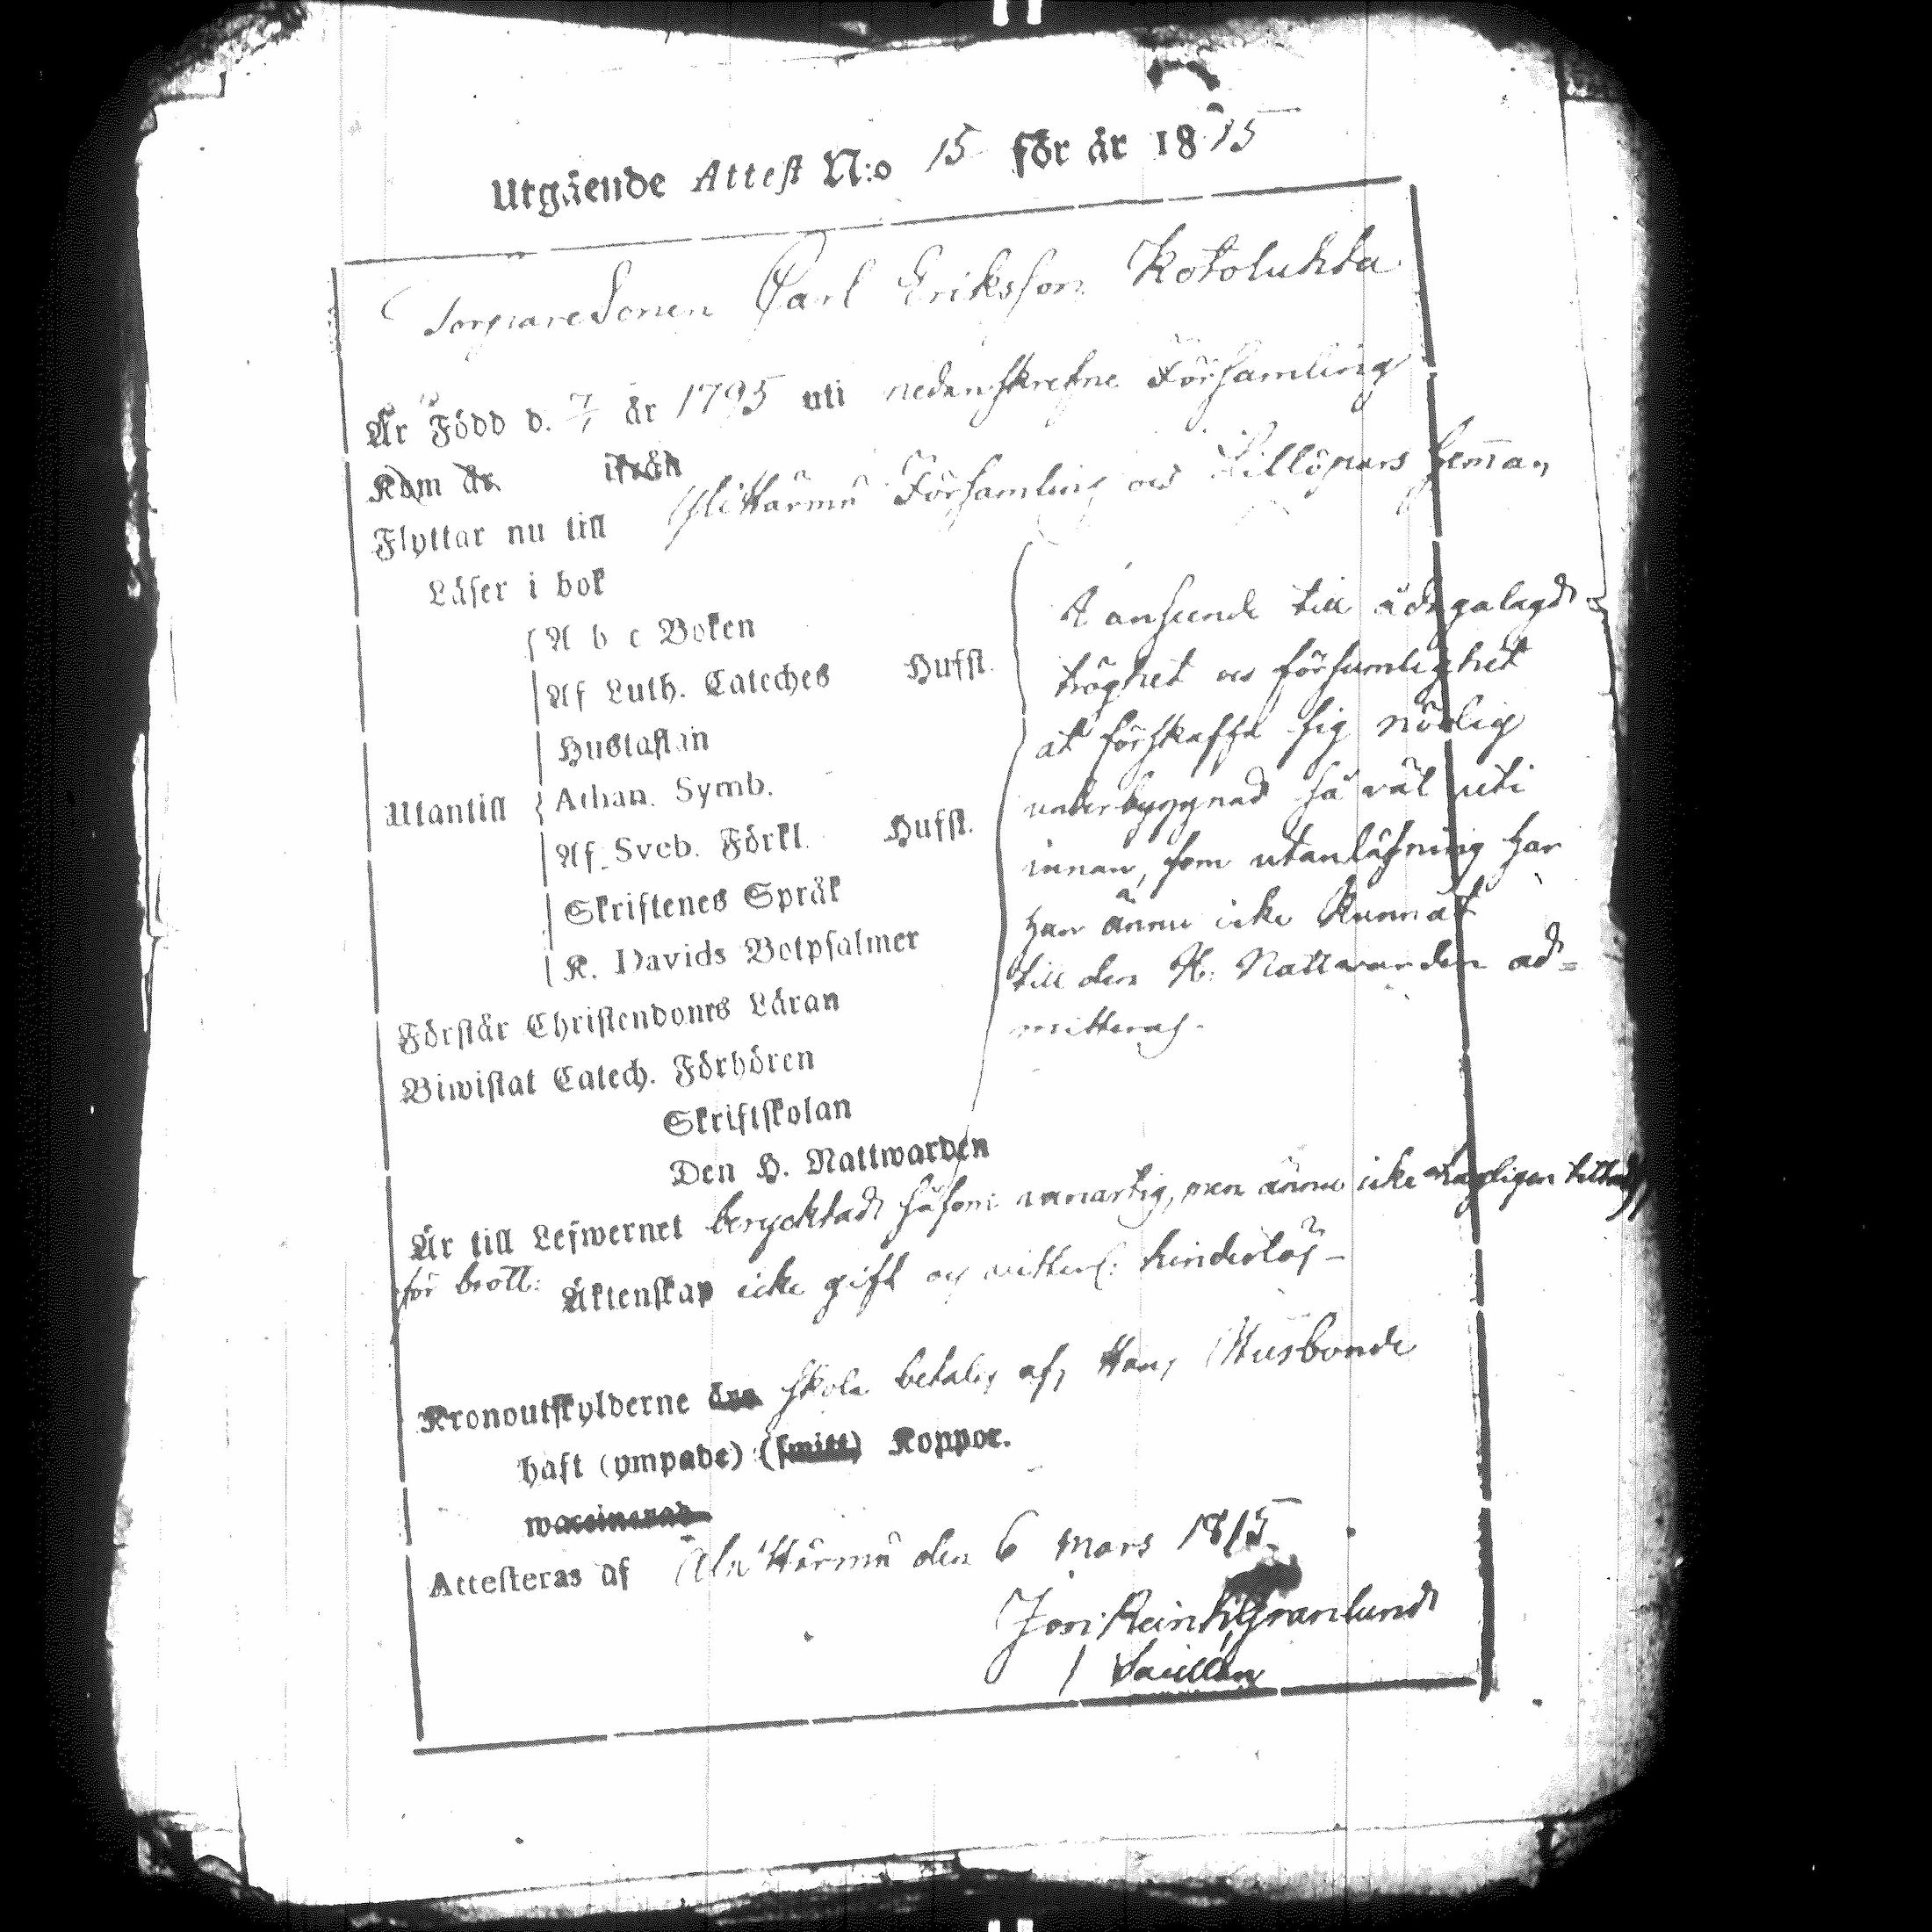 Utgående Attest N:o 15 för år 1815
Torpare Sonen Carl Eriksson Kotolukka
Är Född d. 7/1 år 1795 uti nedanskrefne Församling
Kom år ifrån
Flyttar nu till Församling och Lillöpars heman
Läser i bok
A b c Boken
Af Luth. Cateches Hufst.
Hustaflan
Utantill Athan. Symb.
Af Sveb. Förkl. Hufst.
Skriftenes Språk
K. Davids Botpsalmer
I anseende till ådagalagd
tröghet och försumlighet
at förskaffa sig nödig
underbyggnad så väl uti
innan, som utanläsning har
han ännu icke kunnat
till den H. Nattvarden ad=
mitteras.
Förstår Christendoms Läran
Biwistat Catech. Förhören
Skriftskolan
Den H. Nattwarden
Är till Lefwernet beryktad såsom vanartig, men ännu icke lagligen tilltald
för brott: Äktenskap icke gift och hinderlös
Kronoutskylderne äro skola betalas af Hans Husbonde
haft (ympade) (smitt) Koppor.
waccinerad
Attesteras af Ala Härmä den 6 Mars 1815
Granlund